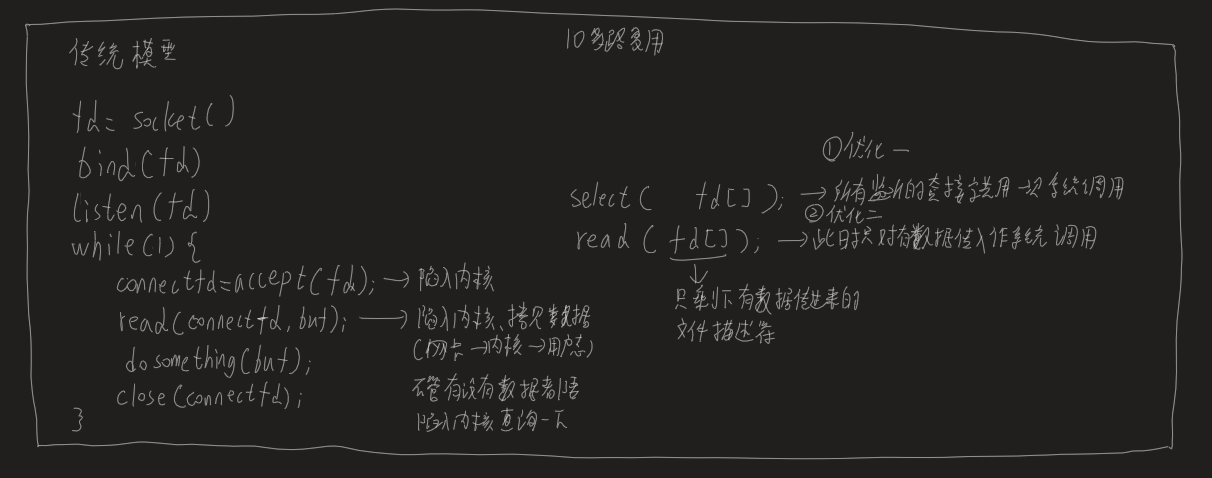 传统模型
fd= socket()
bind(fd)
listen(fd)
while(1) {
connectfd=accept(fd); → 陷入内核
read(connectfd, buf); → 陷入内核、拷贝数据
(网卡→内核→用户态)
dosomething(buf);
不管有没有数据都得
close(connectfd);
陷入内核查询一下
}
IO多路复用
①优化一
select( fd[] ); → 所有监听的套接字共用一次系统调用
②优化二
read ( fd[] ); → 此时只对有数据传入作系统调用
↓
只剩下有数据传进来的
文件描述符